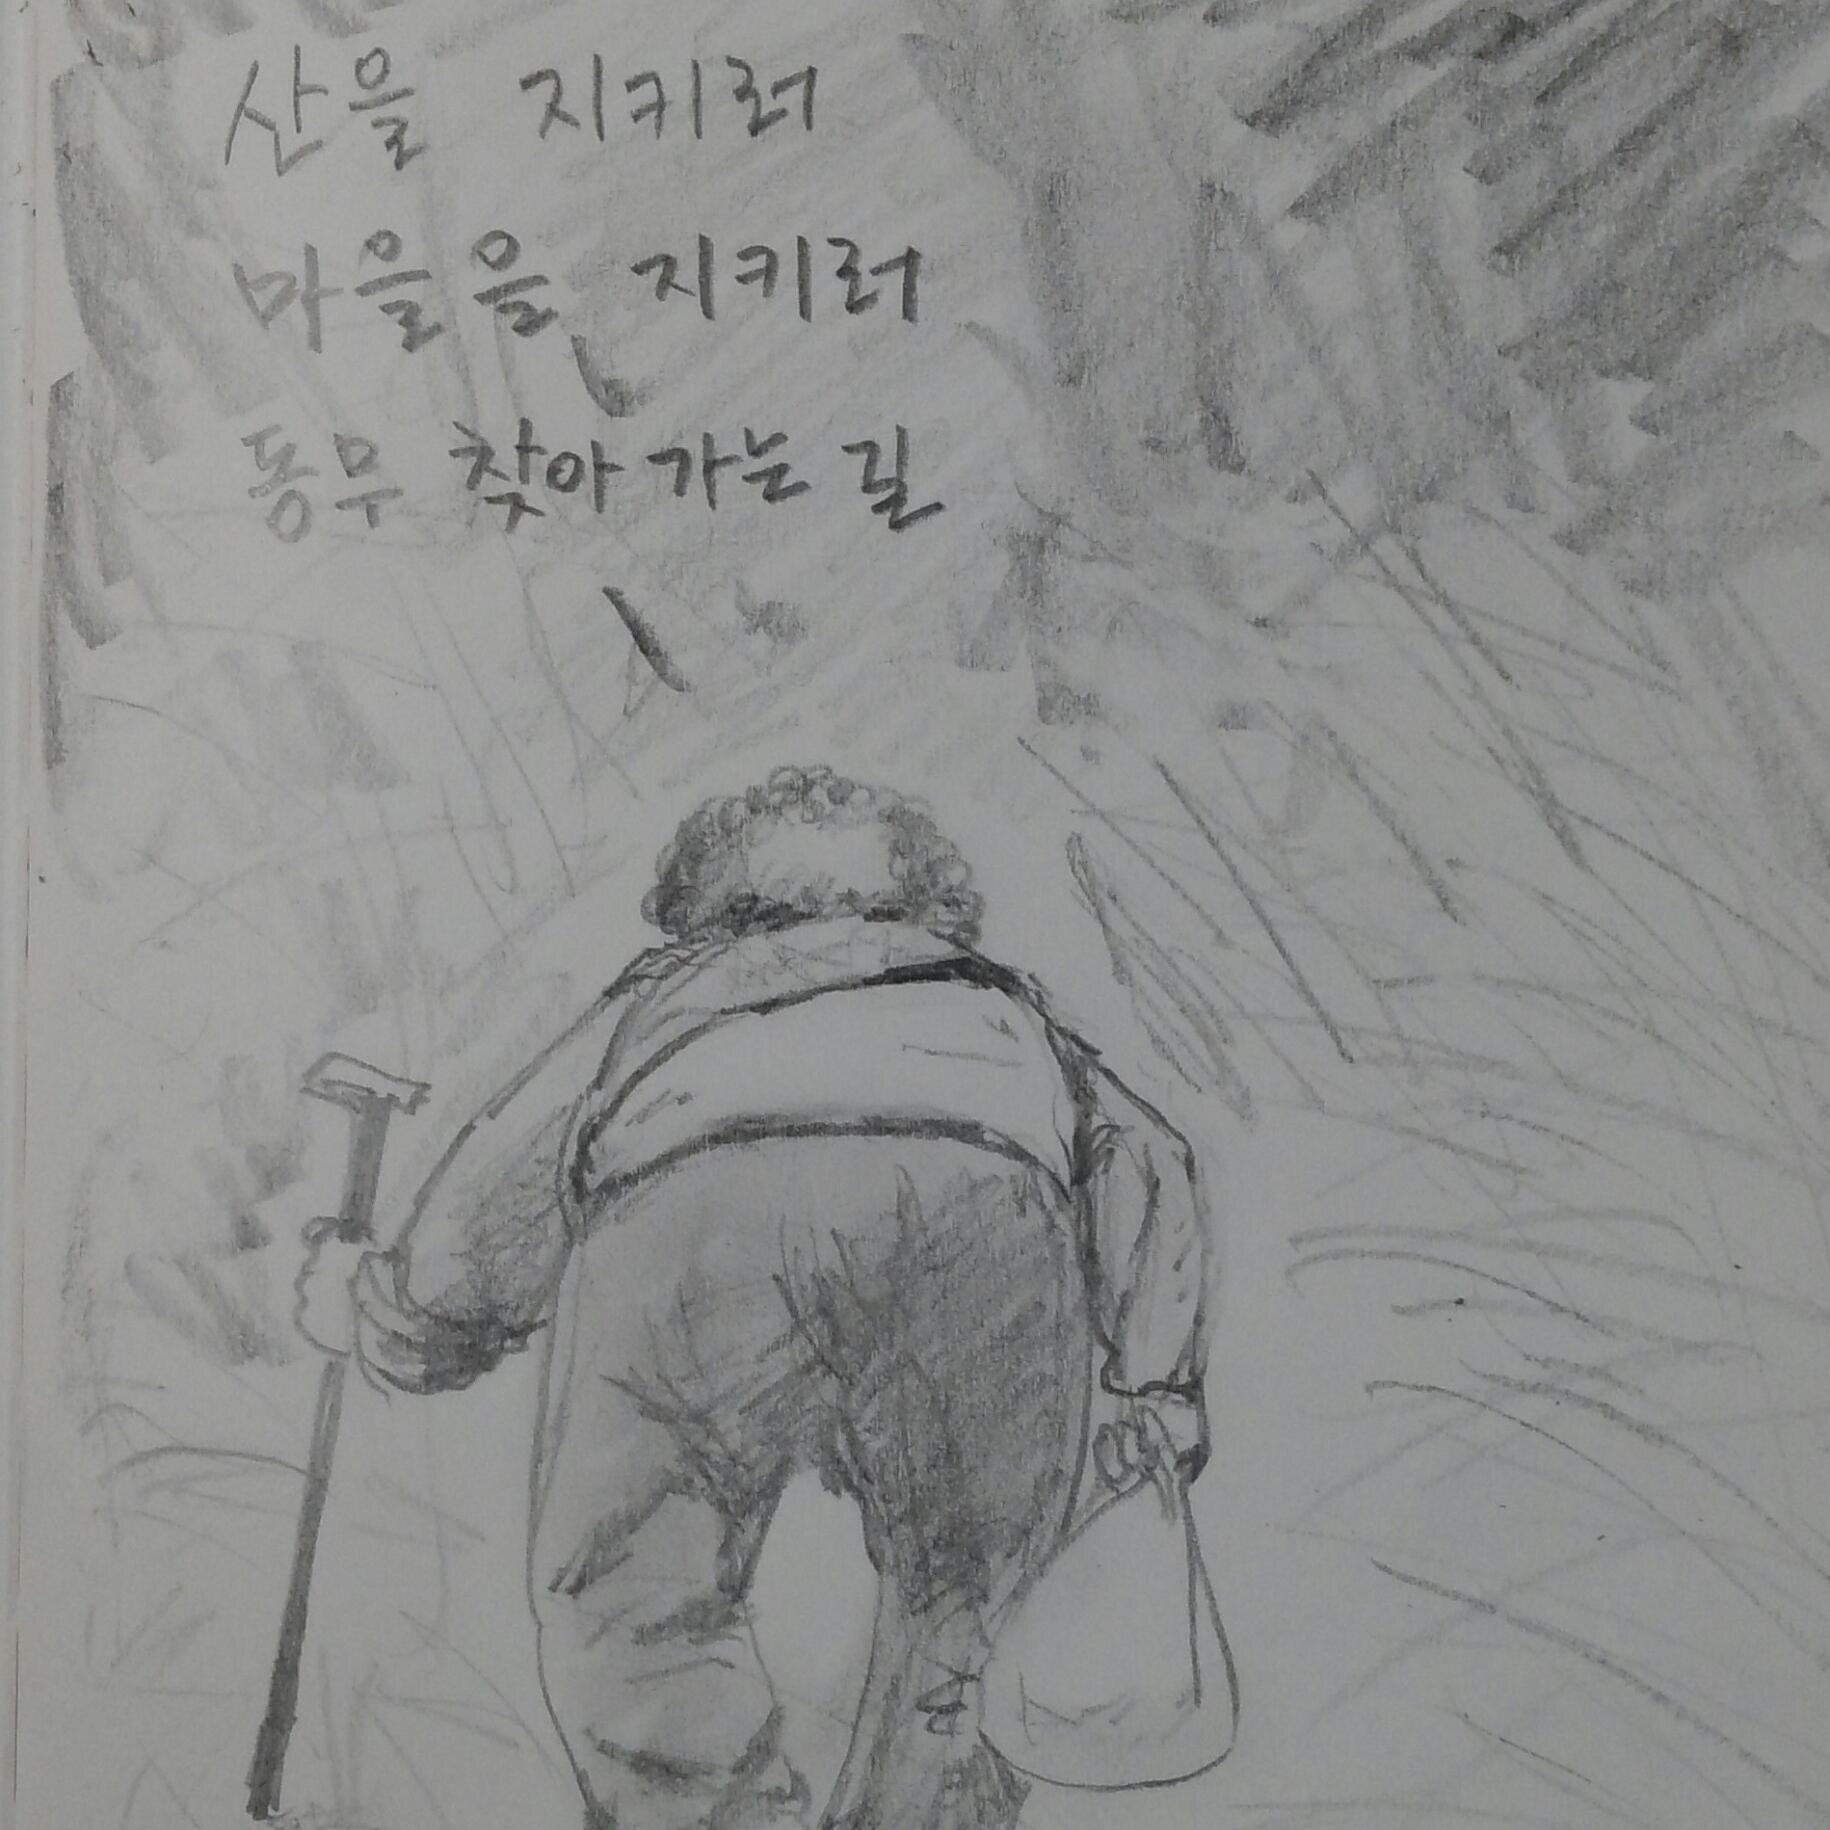 산을 지키러
마을을 지키러
동무 찾아 가는 길